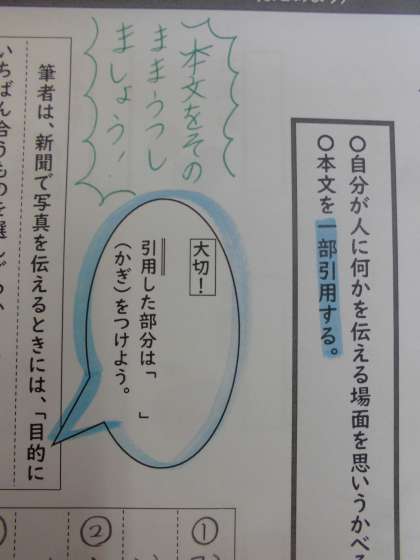 〇自分が人に何かを伝える場面を思いうかべる
〇本文を一部引用する。
本文をその
ままうつし
ましょう！
大切！
引用した部分は「　　」
（かぎ）をつけよう。
筆者は、新聞で写真を伝えるときには、「目的に
いちばん合うものを選
①
②